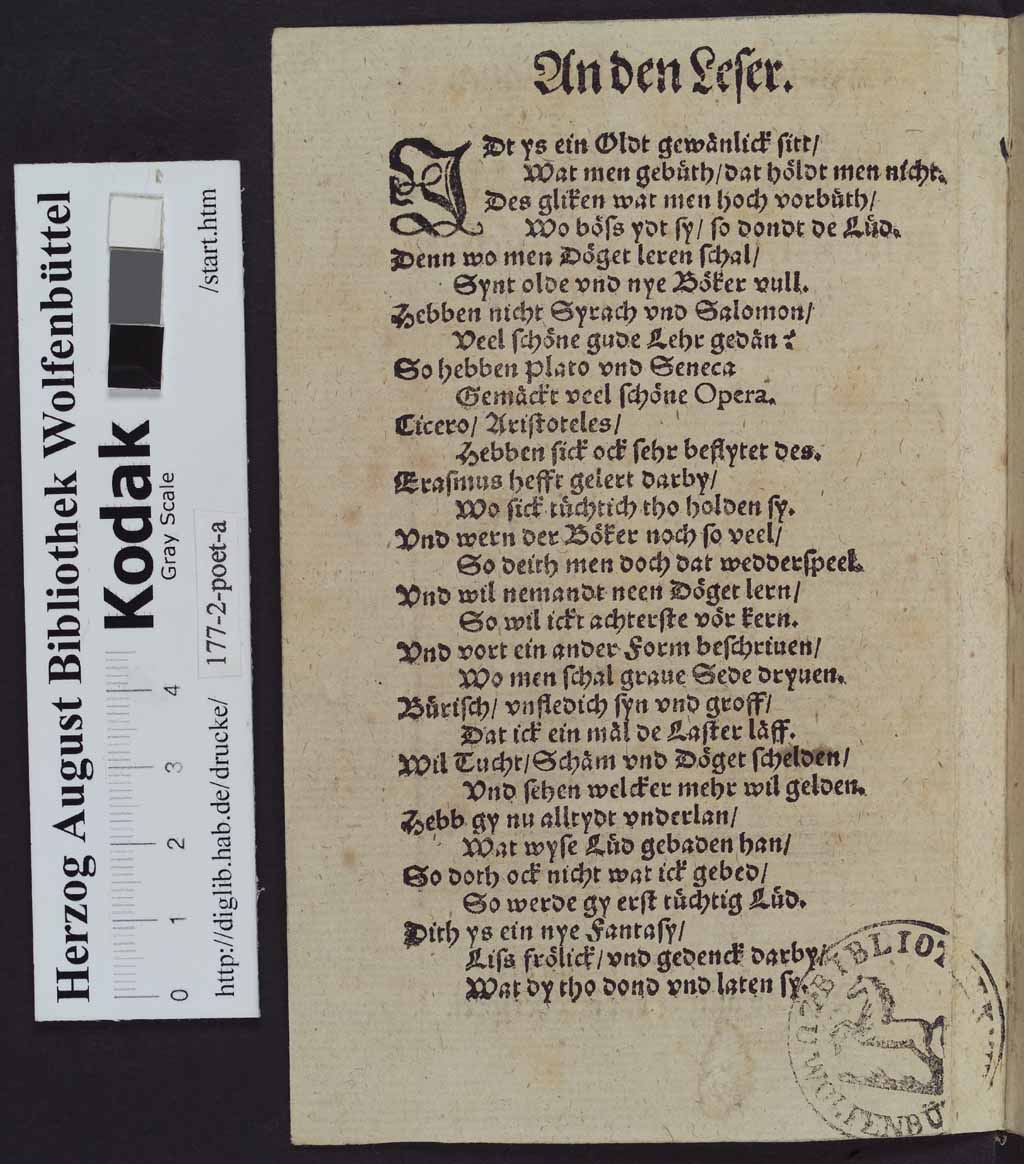 An den Leser.
IDt ys ein Oldt gewänlick sitt/
Wat men gebüth/dat höldt men nicht.
Des gliken wat men hoch vorbüth/
Wo böss ydt sy/ so dondt de Lüd.
Denn wo men Döget leren schal/
Synt olde vnd nye Böker vull.
Hebben nicht Syrach vnd Salomon/
Veel schöne gude Lehr gedän?
So hebben Plato vnd Seneca
Gemäckt veel schöne Opera.
Cicero/ Aristoteles/
Hebben sick ock sehr beflytet des.
Erasmus hefft gelert darby/
Wo sick tüchtich tho holden sy.
Vnd wern der Böker noch so veel/
So deith men doch dat wedderspeel.
Vnd wil nemandt neen Döget lern/
So wil ickt achterste vör kern.
Vnd vort ein ander Form beschriuen/
Wo men schal graue Sede dryuen.
Bürisch/ vnfledich syn vnd groff/
Dat ick ein mäl de Laster läff.
Wil Tucht/Schäm vnd Döget schelden/
Vnd sehen welcker mehr wil gelden.
Hebb gy nu alltydt vnderlan/
Wat wyse Lüd gebaden han/
So doth ock nicht wat ick gebed/
So werde gy erst tüchtig Lüd.
Dith ys ein nye Fantasy/
Liss frölick/ vnd gedenck darby/
Wat dy tho dond vnd laten sy.
Herzog August Bibliothek Wolfenbüttel
Kodak
Gray Scale
0 1 2 3 4
http://diglib.hab.de/drucke/ 177-2-poet-a /start.htm